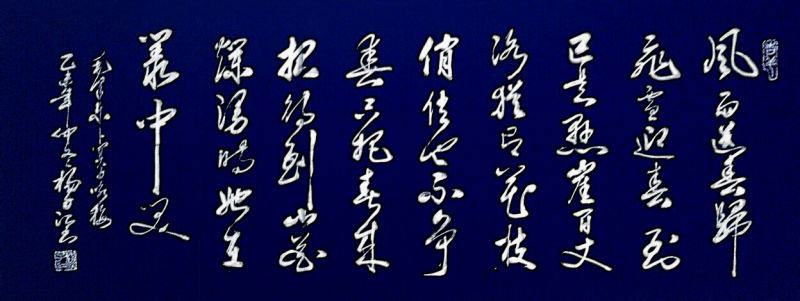 風雨送春歸
飛雪迎春到
已是懸崖百丈
冰猶有花枝
俏俏也不争
春只把春来
报待到山花
爛漫時她在
叢中笑
毛泽东卜算子咏梅
年仲冬楊